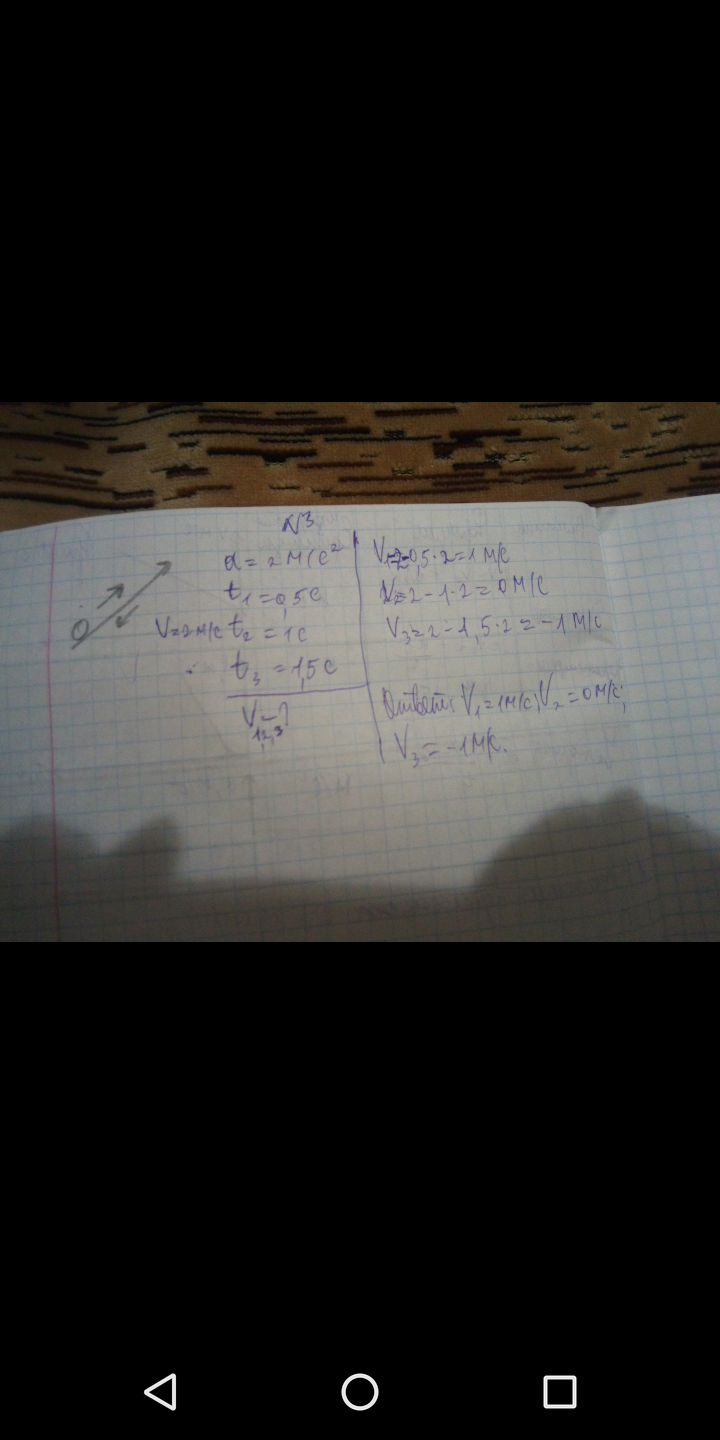 N3
a = 2 м/с²
t₁ = 0,5с
V=2м/с t₂ = 1с
t₃ = 1,5с
V₁,₂,₃ = ?
V₁=2-0,5·2=1 м/с
V₂=2-1·2=0м/с
V₃=2-1,5·2=-1м/с
Ответ: V₁=1м/с; V₂=0м/с;
V₃=-1м/с.